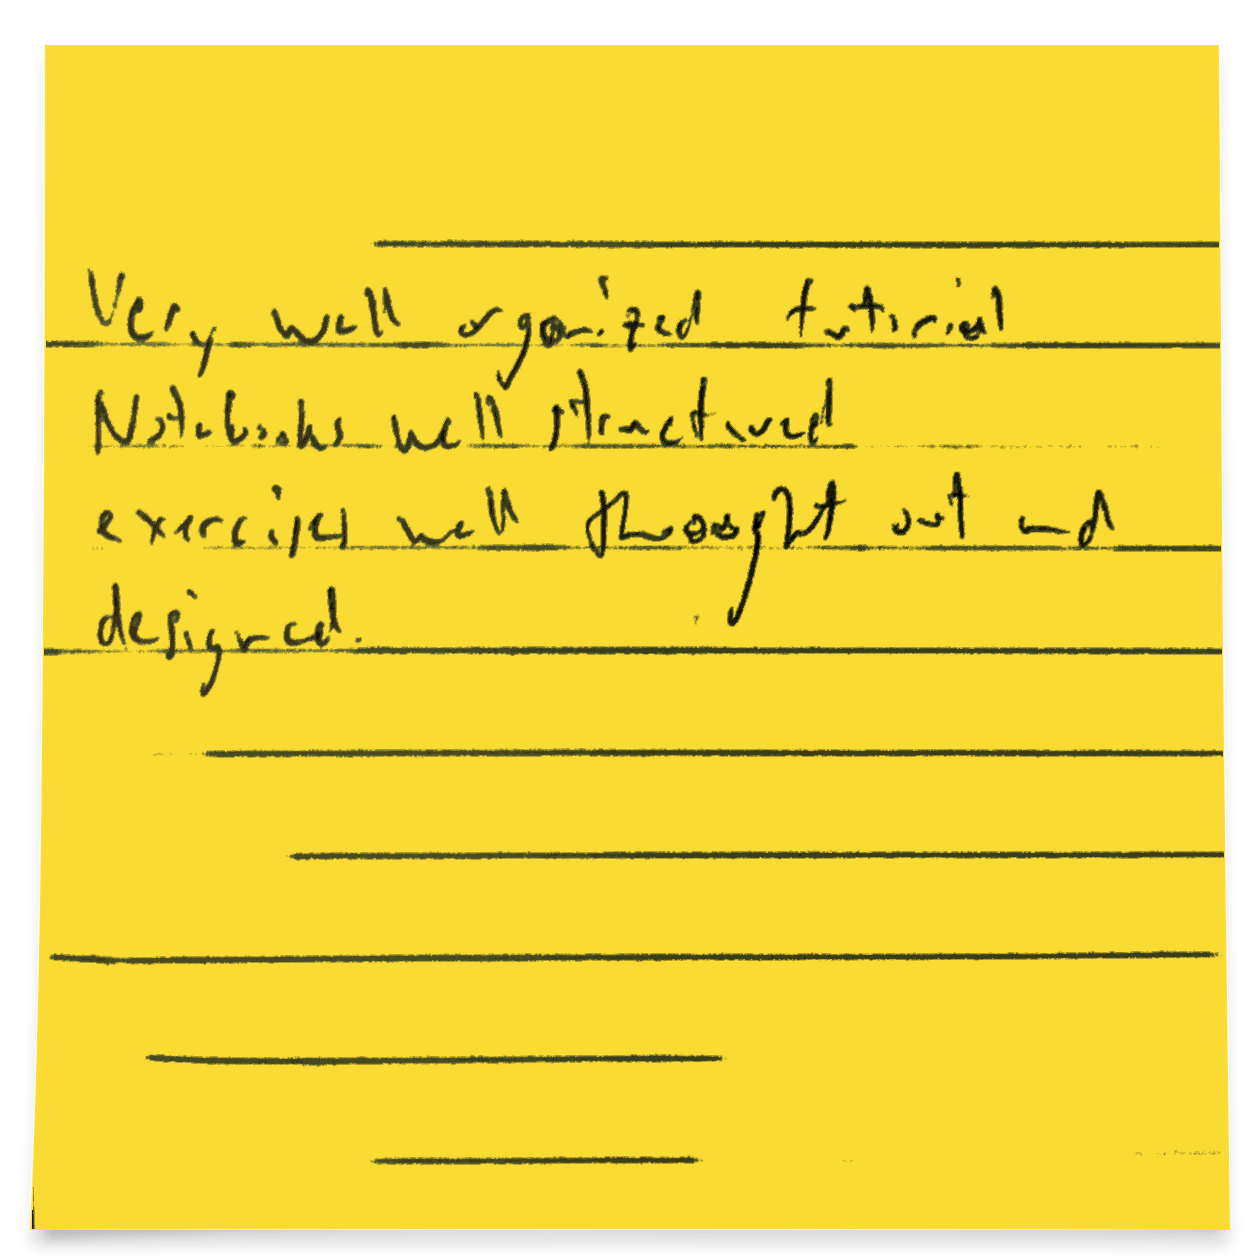 Very well organized tutorial
Notebooks well structured
exercises well thought out and
designed.